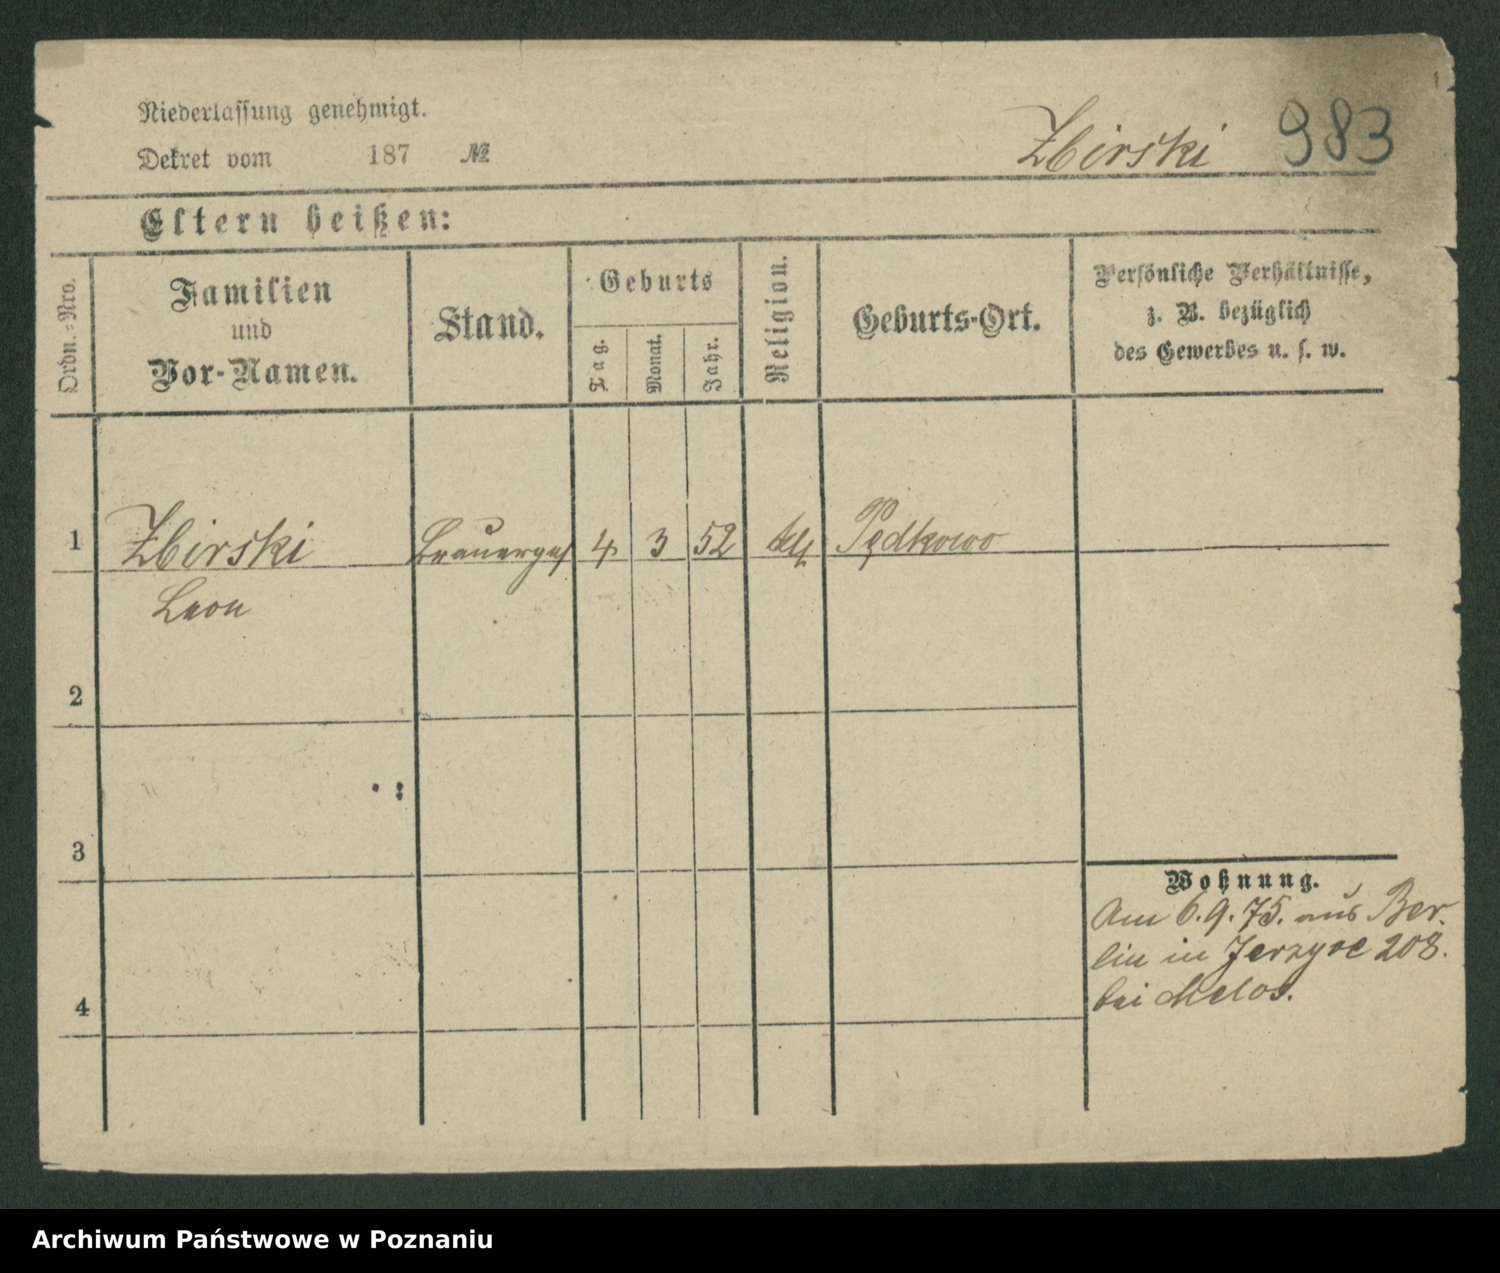 Niederlassung genehmigt.
Dekret vom 187 №
Zbirski 983
Eltern heißen:
Ordn.=Nro.
Familien
und
Vor-Namen.
Stand.
Geburts
Tag.
Monat.
Jahr.
Religion.
Geburts-Ort.
Persönliche Verhältnisse,
z. B. bezüglich
des Gewerbes u. s. w.
1 Zbirski Brauerges 4 3 52 kth Pędkowo
Leon
2
3
4
Wohnung.
Am 6.9.75. aus Ber-
lin in Jerzyce 208.
bei Melos.
Archiwum Państwowe w Poznaniu